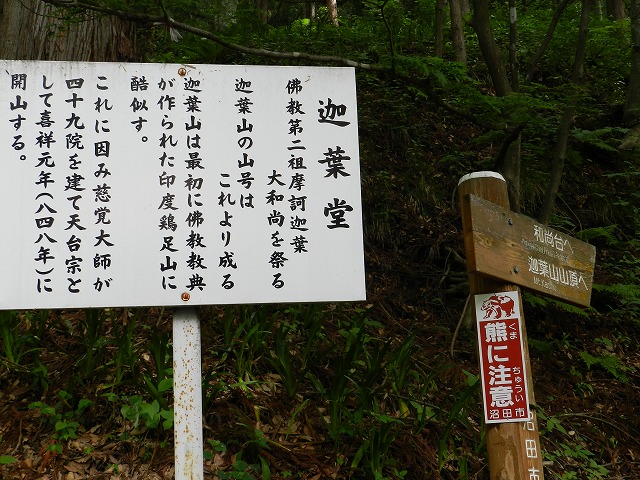 迦葉堂
佛教第二祖摩訶迦葉
大和尚を祭る
迦葉山の山号は
これより成る
迦葉山は最初に佛教教典
が作られた印度鶏足山に
酷似す。
これに因み慈覚大師が
四十九院を建て天台宗と
して喜祥元年(八四八年)に
開山する。
和尚台へ
迦葉山山頂へ
熊に注意
くま
ちゅうい
沼田市
沼田市